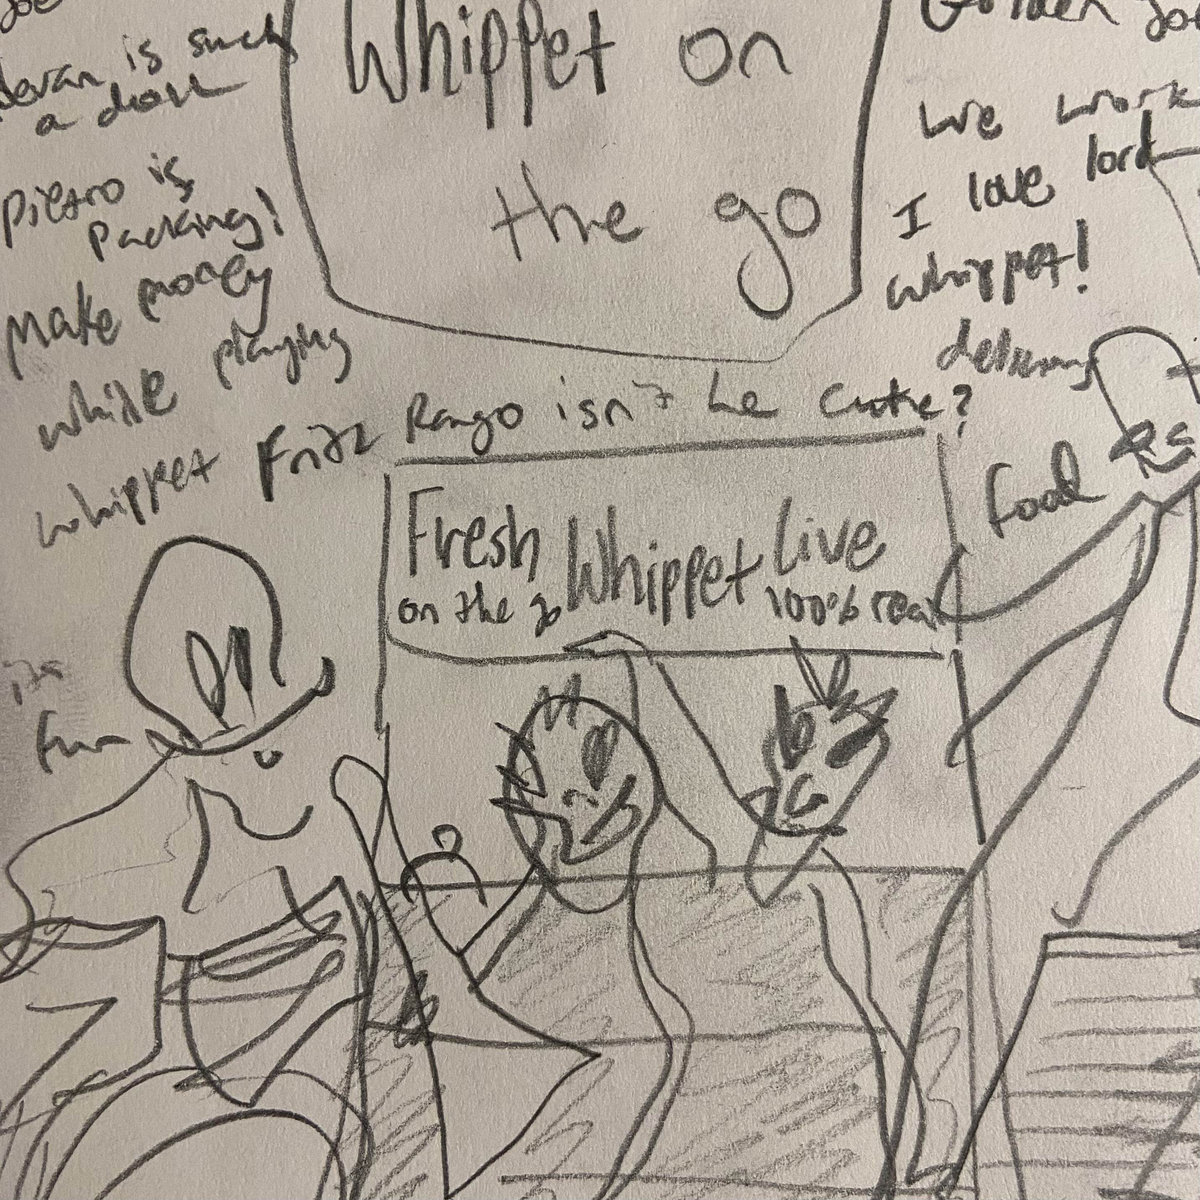 Whippet on
the go
is such
a
Pietro is
packing!
Make money
while playing
whippet Fritz
Rango isn't he cute?
We work
I love lord
whippet!
delivery
food
Fresh Whippet Live
on the go 100% real
its
fun